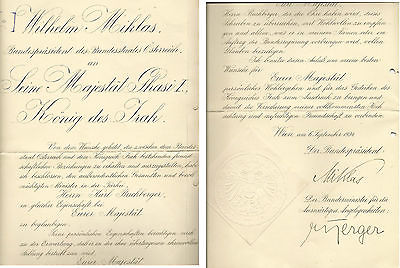 Wilhelm Miklas,
Bundespräsident des Bundesstaates Österreich,
an
Seine Majestät Ghasi I.,
König des Irak.
Von dem Wunsche geleitet, die zwischen dem Bundes-
staat Österreich und dem Königreich Irak bestehenden freund-
schaftlichen Beziehungen zu erhalten und auszugestalten, habe
ich beschlossen, den außerordentlichen Gesandten und bevoll-
mächtigten Minister in der Türkei
Herrn Karl Buchberger
in gleicher Eigenschaft bei
Eurer Majestät
zu beglaubigen.
Seine persönlichen Eigenschaften berechtigen mich
zu der Erwartung, daß er der ihm übertragenen ehrenvollen
Stellung gerecht
Eure Majestät
Eure Majestät
Herrn Buchberger, der die Ehre haben wird, dieses
Schreiben zu überreichen, mit Wohlwollen zu empfan-
gen und allem, was er in meinem Namen oder im
Auftrag der Bundesregierung vorbringen wird, vollen
Glauben beizulegen.
Ich benutze diesen Anlaß, um meine besten
Wünsche für
Eurer Majestät
persönliches Wohlergehen und für das Gedeihen des
Königreiches Irak zum Ausdruck zu bringen und
damit die Versicherung meiner vollkommensten Hoch-
achtung und aufrichtigen Freundschaft zu verbinden.
Wien, am 6. September 1934.
Der Bundespräsident:
Miklas
Der Bundesminister für die
Auswärtigen Angelegenheiten:
Berger